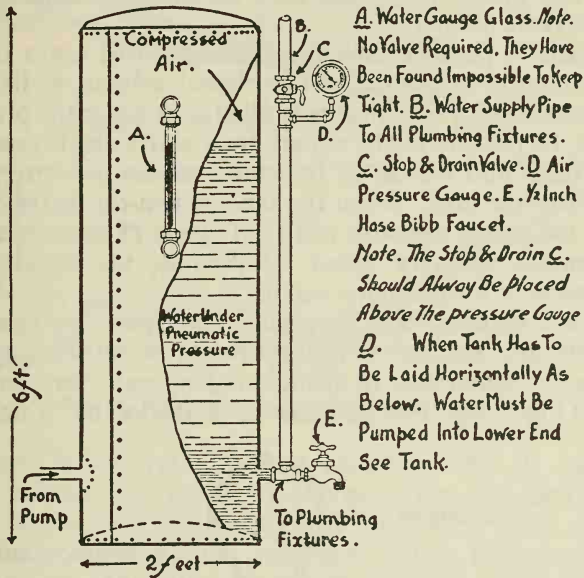 Compressed
Air.
A.
B.
C
D.
Water Under
Pneumatic
Pressure
6ft.
From
Pump
2 feet
E.
To Plumbing
Fixtures.
A. Water Gauge Glass. Note.
No Valve Required. They Have
Been Found Impossible To Keep
Tight. B. Water Supply Pipe
To All Plumbing Fixtures.
C. Stop & Drain Valve. D Air
Pressure Gauge. E. ½ Inch
Hose Bibb Faucet.
Note. The Stop & Drain C.
Should Alway Be placed
Above The pressure Gauge
D. When Tank Has To
Be Laid Horizontally As
Below. Water Must Be
Pumped Into Lower End
See Tank.